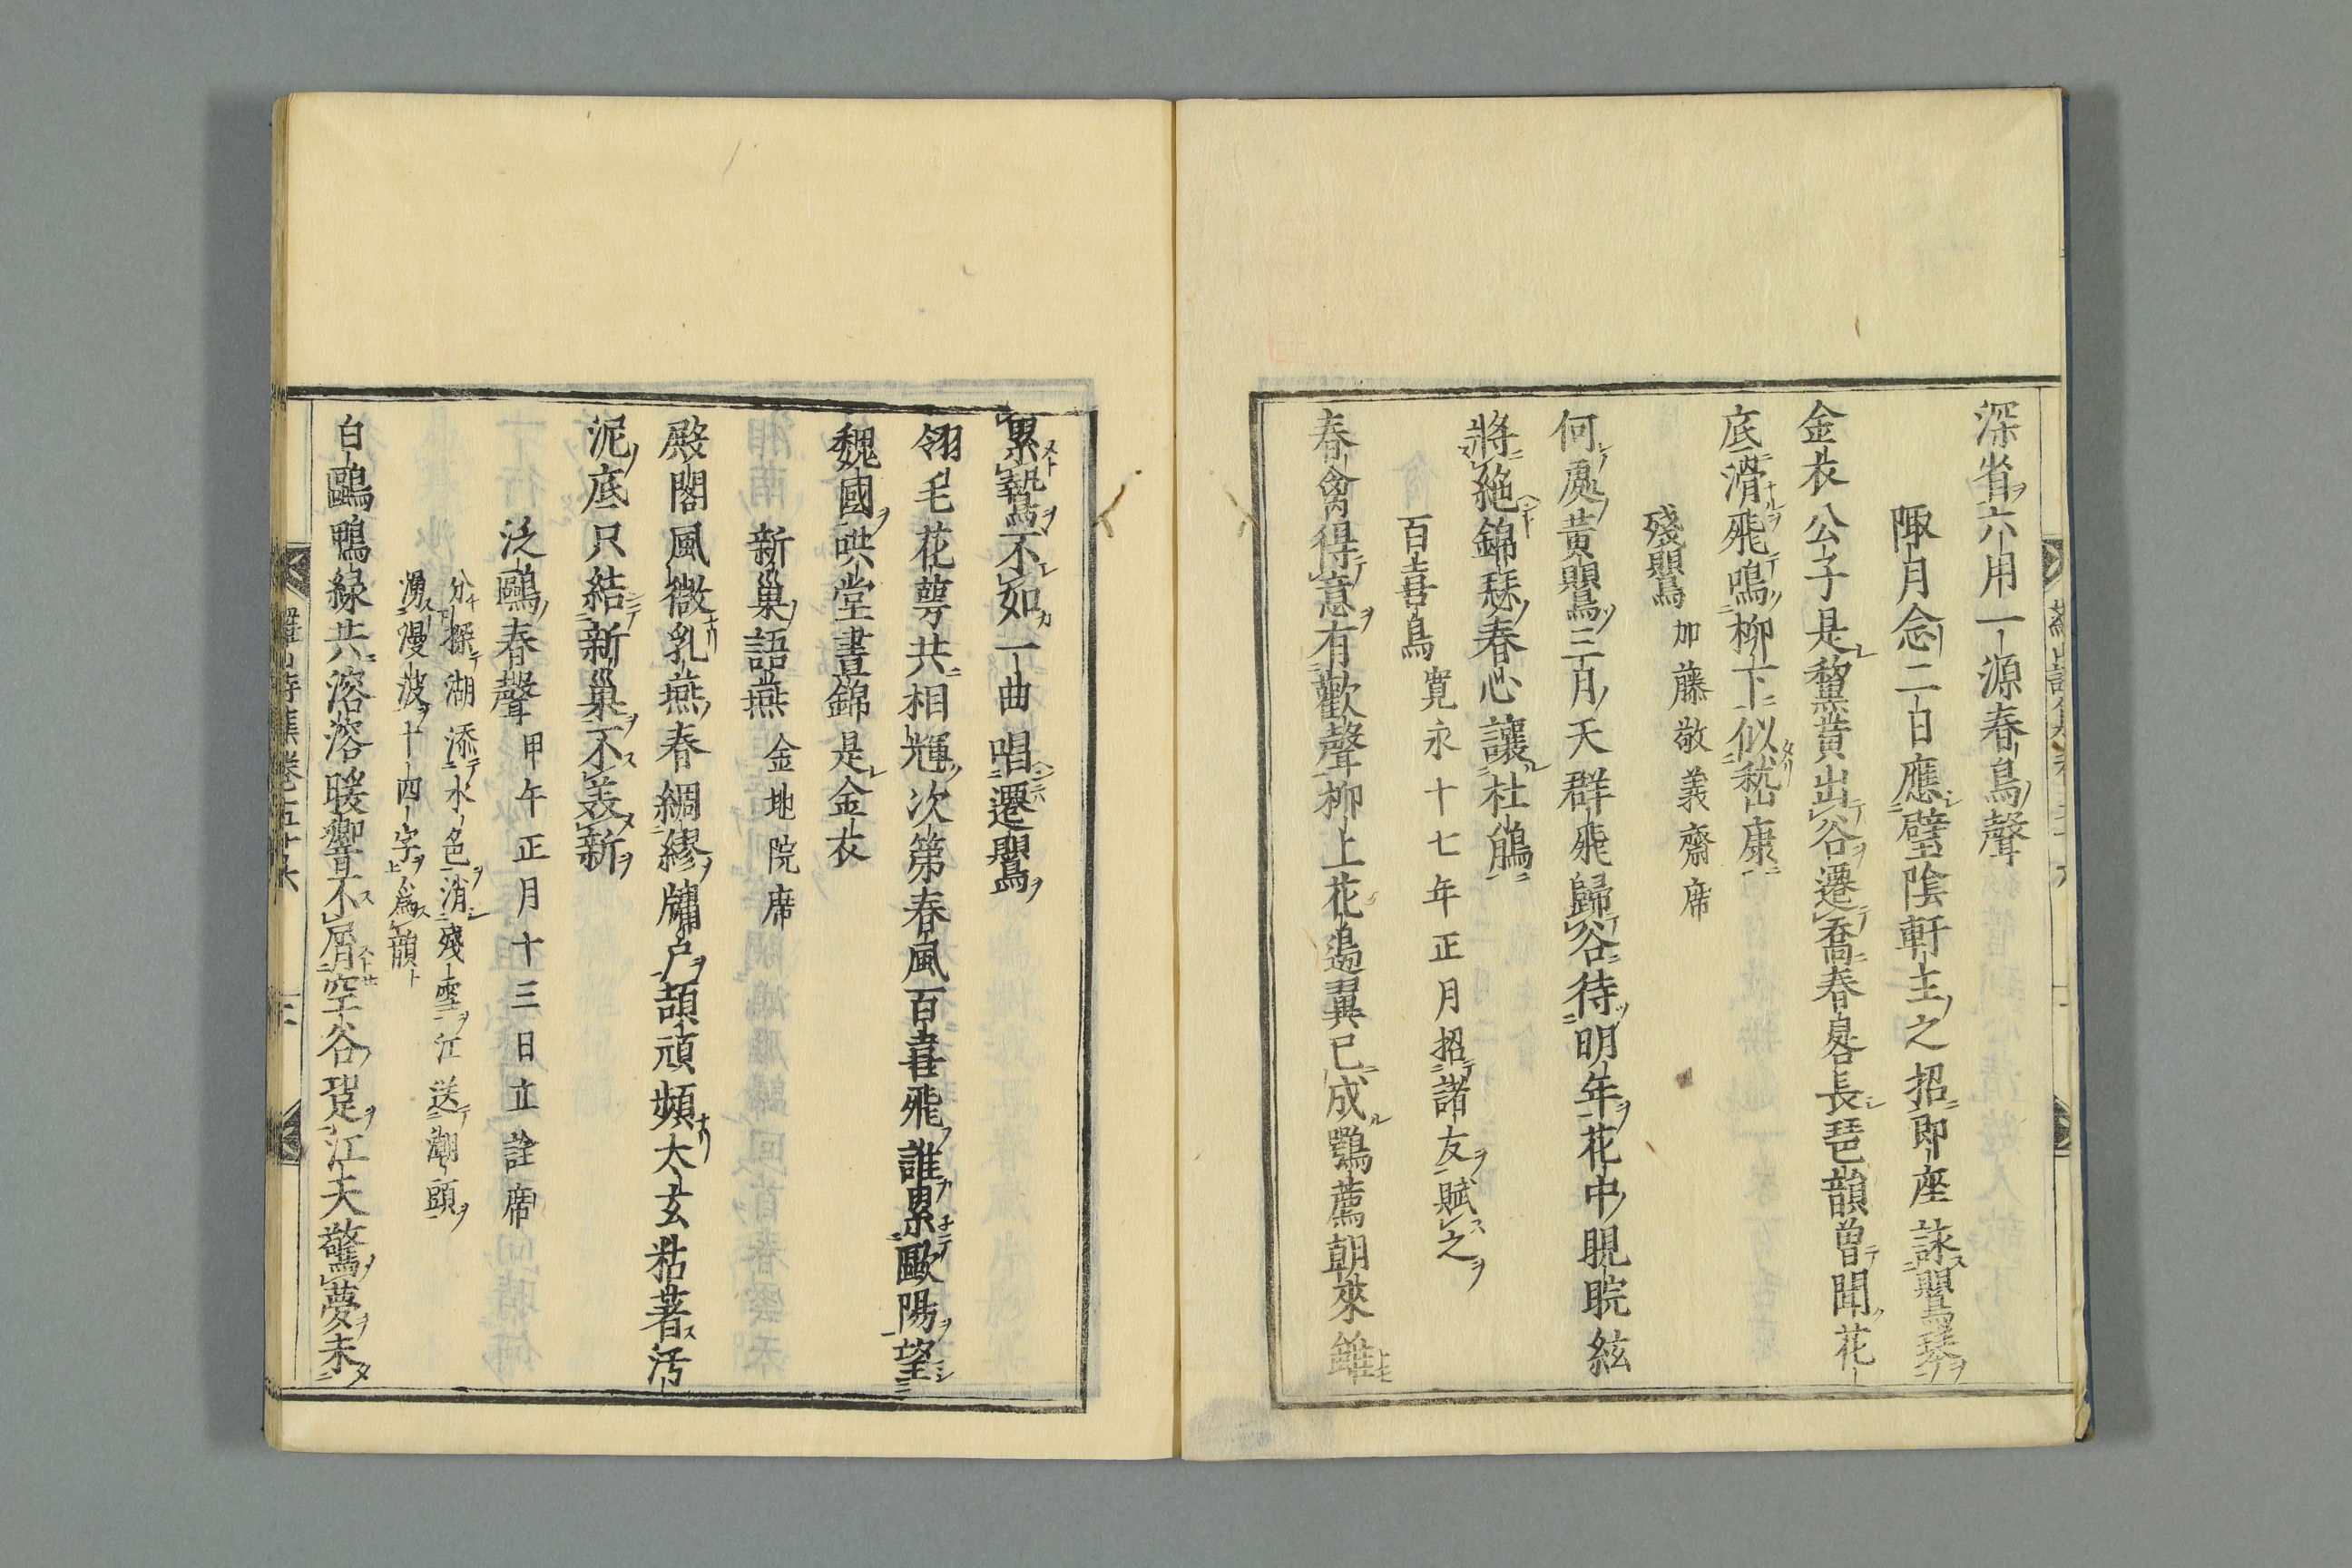 深省六用一源春鳥聲
陬月念二日應璧陰軒主之招即座詠鸎琴
金衣公子是黧黄出谷遷喬春晷長琶韻曽聞花
底滑飛鳴柳下似嵆康
殘鸎 加藤敬義齋席
何處黄鸎三月天群飛歸谷待明年花中睍睆絃
將絶錦瑟春心讓杜鵑
百喜鳥 寛永十七年正月招諸友賦之
春禽得意有歡聲柳上花邉翼已成鶚薦朝來雖
累鷙不如一曲唱遷鸎
翎毛花萼共相輝次第春風百喜飛誰累歐陽望
魏國哄堂晝錦是金衣
新巢語燕 金地院席
殿閣風微乳燕春綢繆牖户頡頏頻大玄粘著汚
泥底只結新巢不羨新
泛鷗春聲 甲午正月十三日立詮席
分探湖添水色消殘雪江送潮頭
湧漫波十四字爲韻
白鷗鴨緑共溶溶暖響不屑空谷跫江天驚夢未
羅山詩集卷五十六